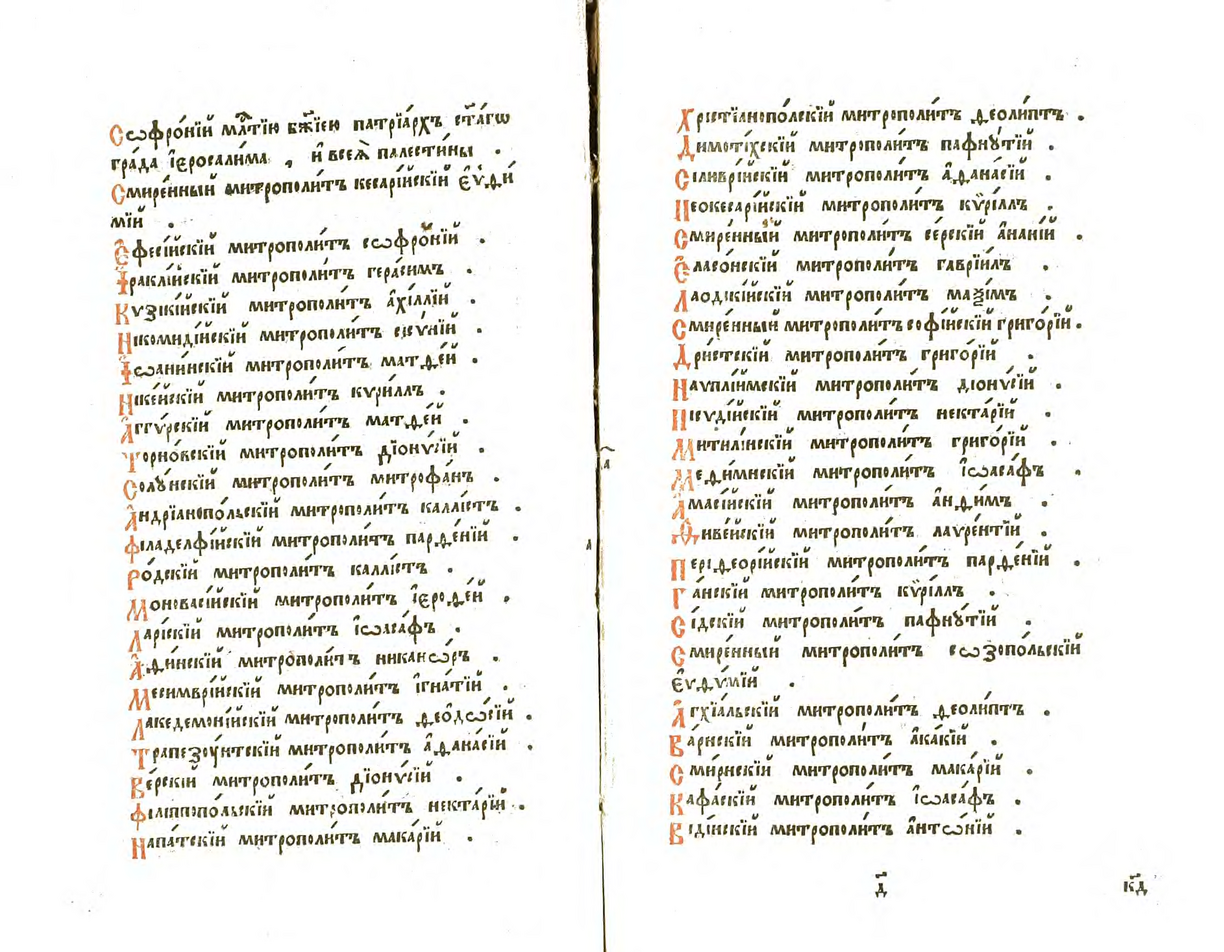 Сѡфро́нїй млⷭ҇тїю бж҃їею патрїа́рхъ ст҃а́гѡ
гра́да і҆єросали́ма , и҆ всеѧ̀ палести́ны .
Смире́нный митрополи́тъ кесарі́йскїй є҆ѵ҆ѳи́
мїй .
Є҆фесі́йскїй митрополи́тъ сѡфро́нїй .
І҆раклі́йскїй митрополи́тъ гера́симъ .
Кѵзікі́йскїй митрополи́тъ а҆хі́ллїй .
Нїкомиді́йскїй митрополи́тъ
І҆ѡани́нскїй митрополи́тъ матѳе́й .
Нїке́йскїй митрополи́тъ кѵри́ллъ .
А҆ггѵ́рскїй митрополи́тъ матѳе́й .
Торно́вскїй митрополи́тъ дїонѵ́сїй .
Солꙋ́нскїй митрополи́тъ митрофа́нъ .
А҆ндрїано́польскїй митрополи́тъ каллі́стъ .
Філаделфі́йскїй митрополи́тъ парѳе́нїй .
Ро́дскїй митрополи́тъ каллі́стъ .
Моновасі́йскїй митрополи́тъ і҆єроѳе́й .
Ларі́скїй митрополи́тъ і҆ѡаса́фъ .
А҆ѳи́нскїй митрополи́тъ никанѡ́ръ .
Месимврі́йскїй митрополи́тъ і҆гна́тїй .
Лакедемоні́йскїй митрополи́тъ ѳеодѡ́сїй .
Трапезоу́нтскїй митрополи́тъ а҆ѳана́сїй .
Ве́рскїй митрополи́тъ дїонѵ́сїй .
Філіппопо́льскїй митрополи́тъ некта́рїй .
Напа́тскїй митрополи́тъ мака́рїй .
Хрїстїанопо́лскїй митрополи́тъ ѳеоли́птъ .
Димоті́хскїй митрополи́тъ пафнꙋ́тїй .
Сіливрі́йскїй митрополи́тъ а҆ѳана́сїй .
Неокесарі́йскїй митрополи́тъ кѵ́ріллъ .
Смире́нный митрополи́тъ се́рскїй а҆на́нїй .
Є҆ласо́нскїй митрополи́тъ гаврїи́лъ .
Лаодікі́йскїй митрополи́тъ маѯі́мъ .
Смире́нный митрополи́тъ софі́йскїй григо́рїй .
Дрі́стскїй митрополи́тъ григо́рїй .
Наѵплі́имскїй митрополи́тъ дїонѵ́сїй .
Писѵді́йскїй митрополи́тъ некта́рїй .
Митилі́нскїй митрополи́тъ григо́рїй .
Меѳі́мнскїй митрополи́тъ і҆ѡаса́фъ .
А҆масі́йскїй митрополи́тъ а҆нѳи́мъ .
Ѳиве́йскїй митрополи́тъ лаѵре́нтїй .
Періѳеорі́йскїй митрополи́тъ парѳе́нїй .
Га́нскїй митрополи́тъ кѵ́ріллъ .
Сі́дскїй митрополи́тъ пафнꙋ́тїй .
Смире́нный митрополи́тъ сѡзопо́льскїй
є҆ѵѳѵ́мїй .
А҆гхїа́льскїй митрополи́тъ ѳеоли́птъ .
Ва́рнскїй митрополи́тъ а҆ка́кїй .
Сми́рнскїй митрополи́тъ мака́рїй .
Кафа́скїй митрополи́тъ і҆ѡаса́фъ .
Віди́нскїй митрополи́тъ а҆нтѡ́нїй .
д҃ кд҃